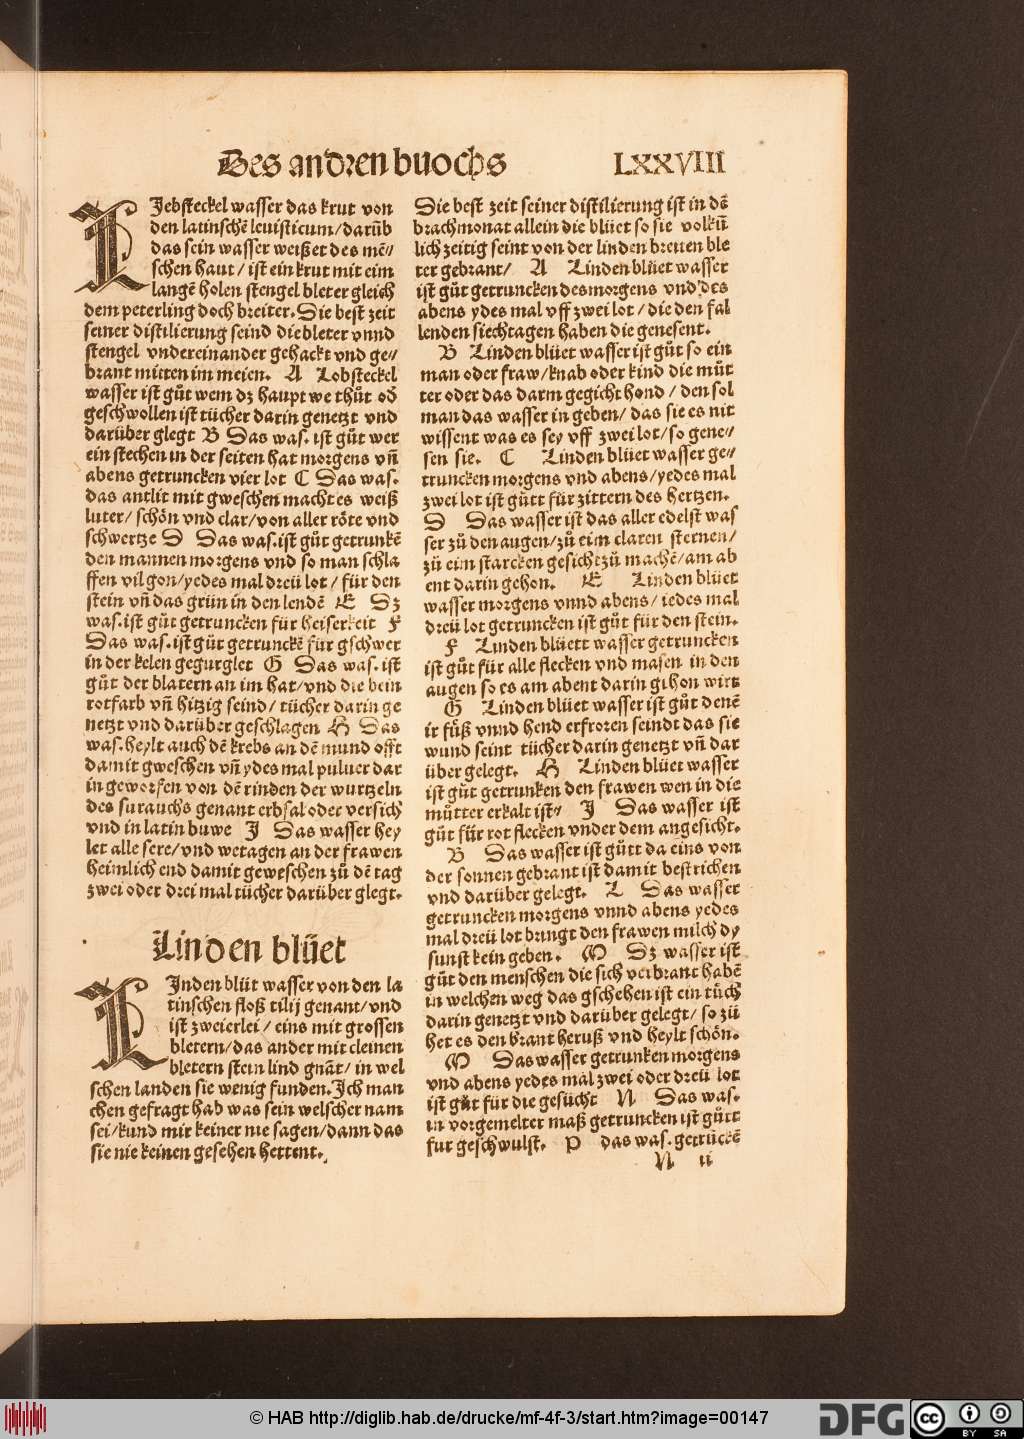 Des andren buochs LXXVIII
LJebsteckel wasser das krut von
den latinschē leuisticum/darūb
das sein wasser weißet des mē//
schen haut/ ist ein krut mit eim
langē holen stengel bleter gleich
dem peterling doch breiter. Die best zeit
seiner distilierung seind die bleter vnnd
stengel vndereinander gehackt vnd ge//
brant mitten im meien. A Lobsteckel
wasser ist gůt wem dz haupt we thůt oď
geschwollen ist tücher darin genetzt vnd
darüber glegt B Das was. ist gůt wer
ein stechen in der seiten hat morgens vñ
abens getruncken vier lot C Das was.
das antlit mit gweschen macht es weiß
luter/ schön vnd clar/von aller röte vnd
schwertze D Das was.ist gůt getrunkē
den mannen morgens vnd so man schla
ffen vil gon/yedes mal dreü lot/ für den
stein vñ das grün in den lendē E Dz
was.ist gůt getruncken für heiserkeit F
Das was.ist gůt getrunckē für gschwer
in der kelen gegurglet G Das was. ist
gůt der blatern an im hat/vnd die bein
rotfarb vñ hitzig seind/ tücher darin ge
netzt vnd darüber geschlagen H Das
was.heylt auch dē krebs an dē mund offt
damit gweschen vñ ydes mal puluer dar
in geworfen von dē rinden der wurtzeln
des surauchs genant erbsal oder versich
vnd in latin buwe J Das wasser hey
let alle sere/vnd wetagen an der frawen
heimlich end damit geweschen zů dē tag
zwei oder drei mal tücher darüber glegt.
Linden blüet
LJnden blüt wasser von den la
tinschen floß tilij genant/vnd
ist zweierlei/ eins mit grossen
bletern/das ander mit cleinen
bletern stein lind gnāt/ in wel
schen landen sie wenig funden.Ich man
chen gefragt hab was sein welscher nam
sei/kund mir keiner nie sagen/dann das
sie nie keinen gesehen hettent.
Die best zeit seiner distilierung ist in dē
brachmonat allein die blüet so sie volkū
lich zeitig seint von der linden breiten ble
ter gebrant/ A Linden blüet wasser
ist gůt getruncken des morgens vnd des
abens ydes mal vff zwei lot/ die den fal
lenden siechtagen haben die genesent.
B Linden blüet wasser ist gůt so ein
man oder fraw/knab oder kind die můt
ter oder das darm gegicht hond/ den sol
man das wasser in geben/ das sie es nit
wissent was es sey vff zwei lot/so gene//
sen sie. C Linden blüet wasser ge//
truncken morgens vnd abens/yedes mal
zwei lot ist gůtt für zittern des hertzen.
D Das wasser ist das aller edelst was
ser zů den augen/zů eim claren sternen/
zů eim starcken gesicht zů machē/am ab
ent darin gehon. E Linden blüet
wasser morgens vnnd abens/ iedes mal
dreü lot getruncken ist gůt für den stein.
F Linden blüett wasser getruncken
ist gůt für alle flecken vnd masen in den
augen so es am abent darin gihon wirt
G Linden blüet wasser ist gůt denē
ir füß vnnd hend erfroren seindt das sie
wund seint tücher darin genetzt vñ dar
über gelegt. H Linden blüet wasser
ist gůt getrunken den frawen wen in die
můtter erkalt ist// J Das wasser ist
gůt für rot flecken vnder dem angesicht.
B Das wasser ist gůtt da eins von
der sonnen gebrant ist damit bestrichen
vnd darüber gelegt. L Das wasser
getruncken morgens vnnd abens yedes
mal dreü lot bringt den frawen milch dy
sunst kein geben. M Dz wasser ist
gůt den menschen die sich verbrant habē
in welchen weg das gschehen ist ein tůch
darin genetzt vnd darüber gelegt/ so zü
het es den brant heruß vnd heylt schön.
M Das wasser getrunken morgens
vnd abens yedes mal zwei oder dreü lot
ist gůt für die gesücht N Das was.
in vorgemelter maß getruncken ist gůtt
fur geschwulst. P das was.getrūckē
N ii
© HAB http://diglib.hab.de/drucke/mf-4f-3/start.htm?image=00147
DFG
cc
BY SA